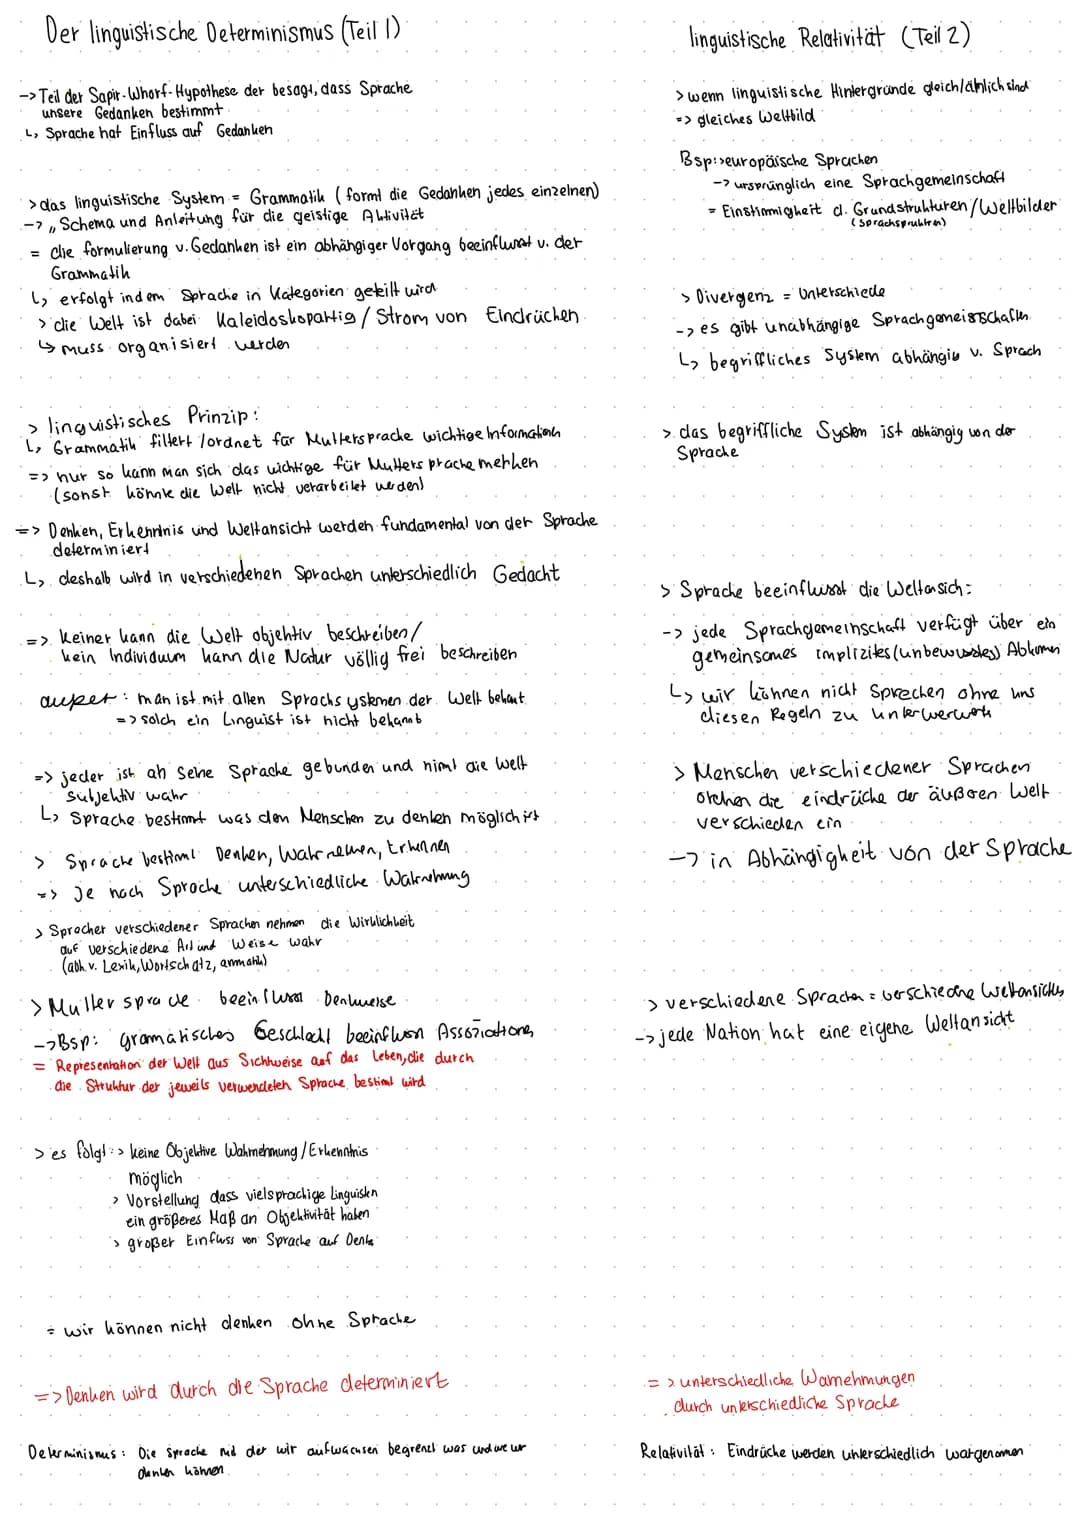 Der linguistische Determinismus (Teil 1)
-> Teil der Sapir-Whorf-Hypothese der besagt, dass Sprache
unsere Gedanken bestimmt
↳ Sprache hat Einfluss auf Gedanken
> das linguistische System = Grammatik (formt die Gedanken jedes einzelnen)
-> „Schema und Anleitung für die geistige Aktivität
= die formulierung v. Gedanken ist ein abhängiger Vorgang beeinflusst v. der
Grammatik
↳ erfolgt indem Sprache in Kategorien geteilt wird
> die Welt ist dabei Kaleidoskopartig / Strom von Eindrücken
↳ muss organisiert werden
> linguistisches Prinzip:
↳ Grammatik filtert /ordnet für Muttersprache wichtige Informationen
=> nur so kann man sich das wichtige für Muttersprache merken
(sonst könnte die Welt nicht verarbeitet werden)
=> Denken, Erkenntnis und Weltansicht werden fundamental von der Sprache
determiniert
↳ deshalb wird in verschiedenen Sprachen unterschiedlich Gedacht
=> Keiner kann die Welt objektiv beschreiben/
kein Individuum kann die Natur völlig frei beschreiben
außer: man ist mit allen Sprachsystemen der Welt bekant
=> solch ein Linguist ist nicht bekannt
=> jeder ist an seine Sprache gebunden und nimt die Welt
subjektiv wahr
↳ Sprache bestimmt was den Menschen zu denken möglich ist
> Sprache bestimmt Denken, Wahrnehmen, Erkennen
=> Je nach Sprache unterschiedliche Wahrnehmung
> Sprecher verschiedener Sprachen nehmen die Wirklichkeit
auf verschiedene Art und Weise wahr
(abh. v. Lexik, Wortschatz,
> Muttersprache beeinflusst Denkweise
-> Bsp: gramatisches Geschlecht beeinflusst Assoziationen
= Representation der Welt aus Sichtweise auf das Leben, die durch
die Struktur der jeweils verwendeten Sprache bestimt wird
> es folgt: > keine Objektive Wahrnehmung/Erkenntnis
möglich
> Vorstellung dass vielsprachige Linguisten
ein größeres Maß an Objektivität haben
> großer Einfluss von Sprache auf Denken
= wir können nicht denken ohne Sprache
=> Denken wird durch die Sprache determiniert
Determinismus: Die Sprache mit der wir aufwachsen begrenzt was und wie wir
denken können
linguistische Relativität (Teil 2)
> wenn linguistische Hintergründe gleich/ähnlich sind
=> gleiches Weltbild
Bsp: > europäische Sprachen
-> ursprünglich eine Sprachgemeinschaft
= Einstimmigkeit d. Grundstrukturen/Weltbilder
(Sprachstrukturen)
> Divergenz = Unterschiede
-> es gibt unabhängige Sprachgemeinschaften
↳ begriffliches System abhängig v. Sprach
> das begriffliche System ist abhängig von der
Sprache
> Sprache beeinflusst die Weltansich:
-> jede Sprachgemeinschaft verfügt über ein
gemeinsames implizites (unbewusstes) Abkommen
↳ wir können nicht Sprechen ohne uns
diesen Regeln zu unterwerfen
> Menschen verschiedener Sprachen
ordnen die eindrücke der äußeren Welt
verschieden ein
-> in Abhängigkeit von der Sprache
> verschiedene Sprachen = verschiedene Weltansichten
-> jede Nation hat eine eigene Weltansicht
= > unterschiedliche Warnehmungen
durch unterschiedliche Sprache
Relativität: Eindrücke werden unterschiedlich wargenommen